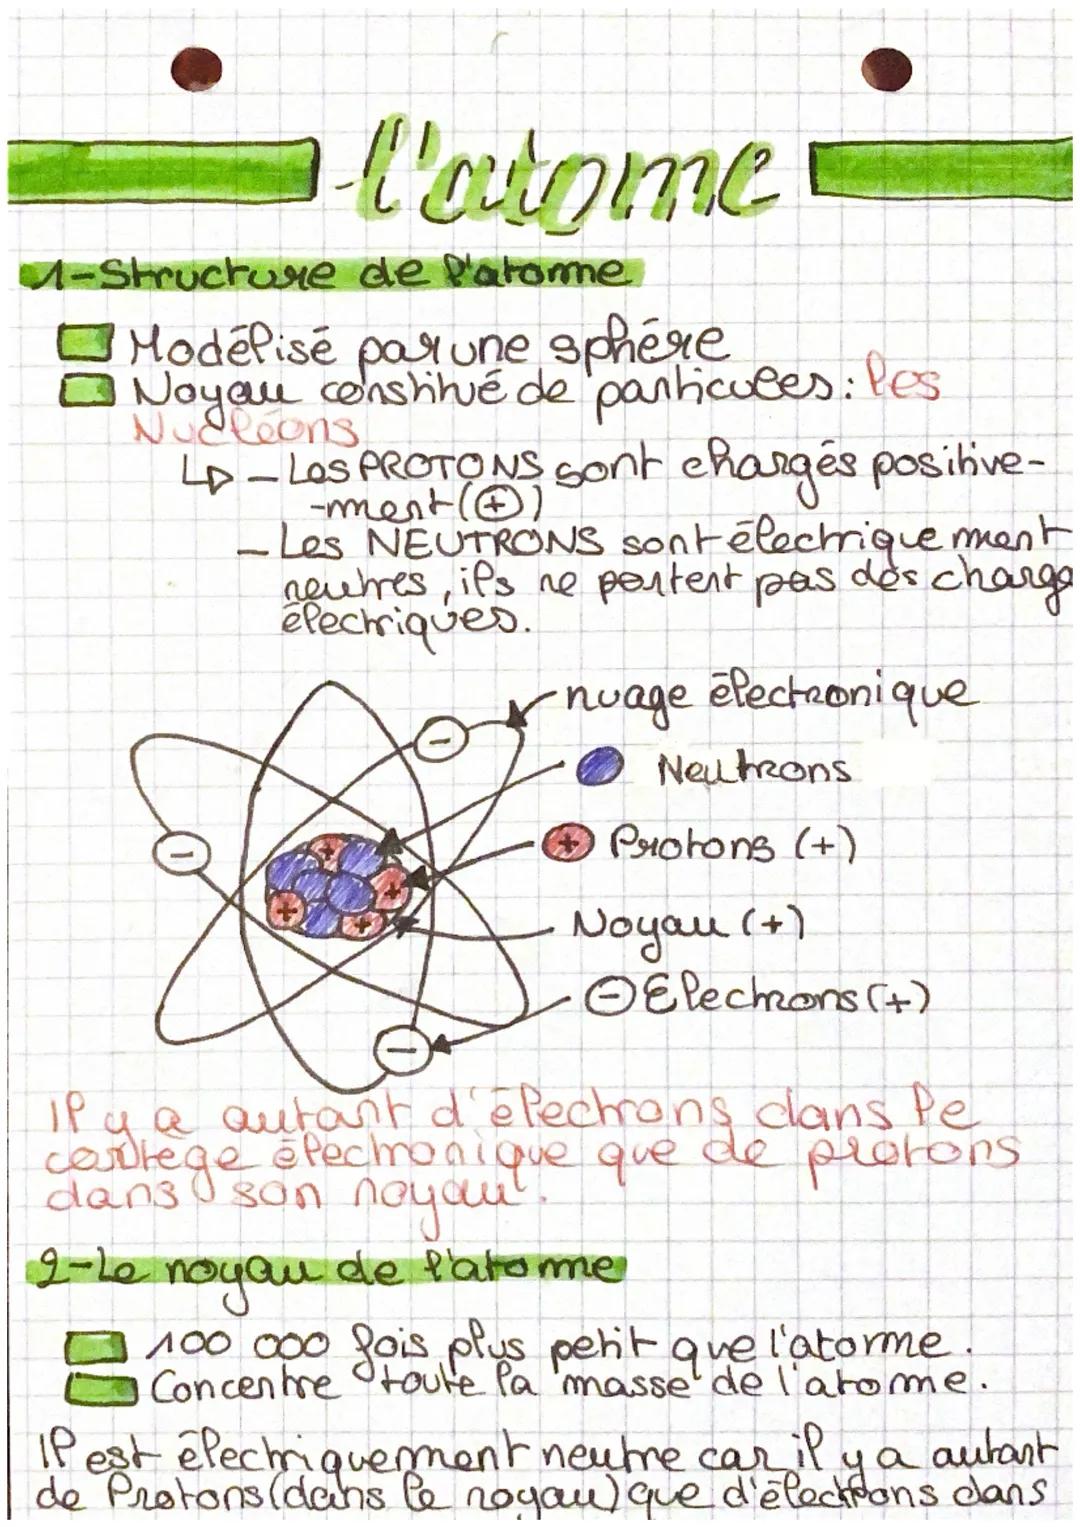 l'atome
1-Structure de l'atome
Modélisé par une sphère
Noyau constitué de particules: les
Nucléons
- Les PROTONS sont chargés positive-
-ment (+)
- Les NEUTRONS sont électriquement
neutres, ils ne portent pas des charge
électriques.
nuage électronique
-
Neutrons
+ Protons (+)
-
+
+
+
+
Noyau (+)
- Electrons (+)
-
Il y a autant d'électrons dans le
cortège électronique que de protons
dans son noyau.
2-Le noyau de l'atome
100 000 fois plus petit que l'atome.
Concentre toute la masse de l'atome.
Il est électriquement neutre car il y a autant
de Protons (dans le noyau) que d'électrons dans